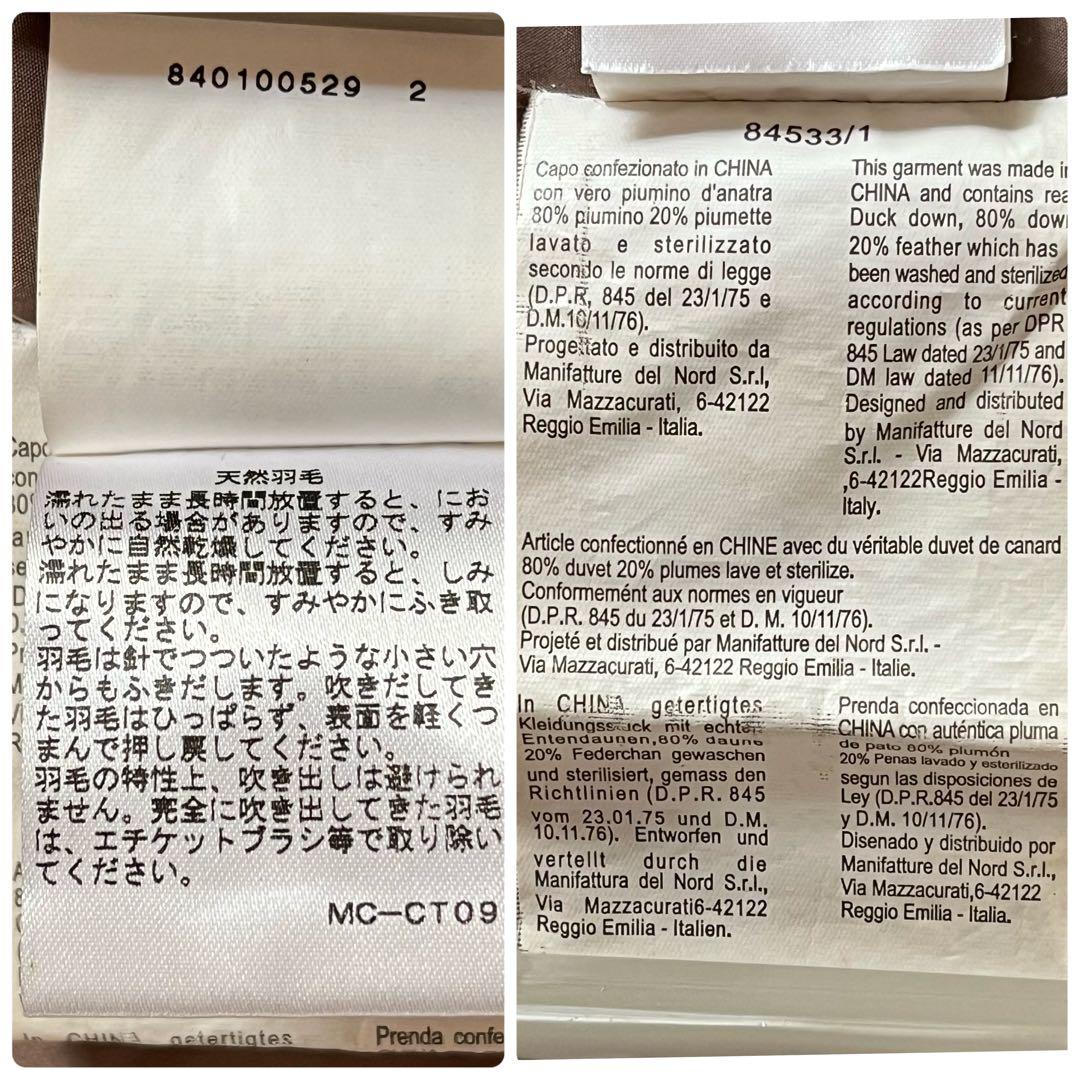 840100529 2
天然羽毛
濡れたまま長時間放置すると、にお
いの出る場合がありますので、すみ
やかに自然乾燥してください。
濡れたまま長時間放置すると、しみ
になりますので、すみやかにふき取
ってください。
羽毛は針でつついたような小さい穴
からもふきだします。吹きだしてき
た羽毛はひっぱらず、表面を軽くつ
まんで押し戻してください。
羽毛の特性上、吹き出しは避けられ
ません。完全に吹き出してきた羽毛
は、エチケットブラシ等で取り除い
てください。
MC-CT09
CHINA getertigtes
Prenda confe
84533/1
Capo confezionato in CHINA
con vero piumino d'anatra
80% piumino 20% piumette
lavato e sterilizzato
secondo le norme di legge
(D.P.R, 845 del 23/1/75 e
D.M.10/11/76).
Progettato e distribuito da
Manifatture del Nord S.r.l,
Via Mazzacurati, 6-42122
Reggio Emilia - Italia.
This garment was made in
CHINA and contains rea
Duck down, 80% dow
20% feather which has
been washed and sterilized
according to current
regulations (as per DPR
845 Law dated 23/1/75 and
DM law dated 11/11/76).
Designed and distributed
by Manifatture del Nord
S.r.l. - Via Mazzacurati,
,6-42122Reggio Emilia -
Italy.
Article confectionné en CHINE avec du véritable duvet de canard
80% duvet 20% plumes lave et sterilize.
Conformemént aux normes en vigueur
(D.P.R. 845 du 23/1/75 et D. M. 10/11/76).
Projeté et distribué par Manifatture del Nord S.r.l. -
Via Mazzacurati, 6-42122 Reggio Emilia - Italie.
In CHINA getertigtes
Kleidungsstuck mit echten
Entendaunen,80% daune
20% Federchan gewaschen
und sterilisiert, gemass den
Richtlinien (D.P.R. 845
vom 23.01.75 und D.M.
10.11.76). Entworfen und
vertellt durch die
Manifattura del Nord S.r.l.,
Via Mazzacurati6-42122
Reggio Emilia - Italien.
Prenda confeccionada en
CHINA con auténtica pluma
de pato 80% plumón
20% Penas lavado y esterilizado
segun las disposiciones de
Ley (D.P.R.845 del 23/1/75
y D.M. 10/11/76).
Disenado y distribuido por
Manifatture del Nord S.r.l.,
Via Mazzacurati,6-42122
Reggio Emilia - Italia.